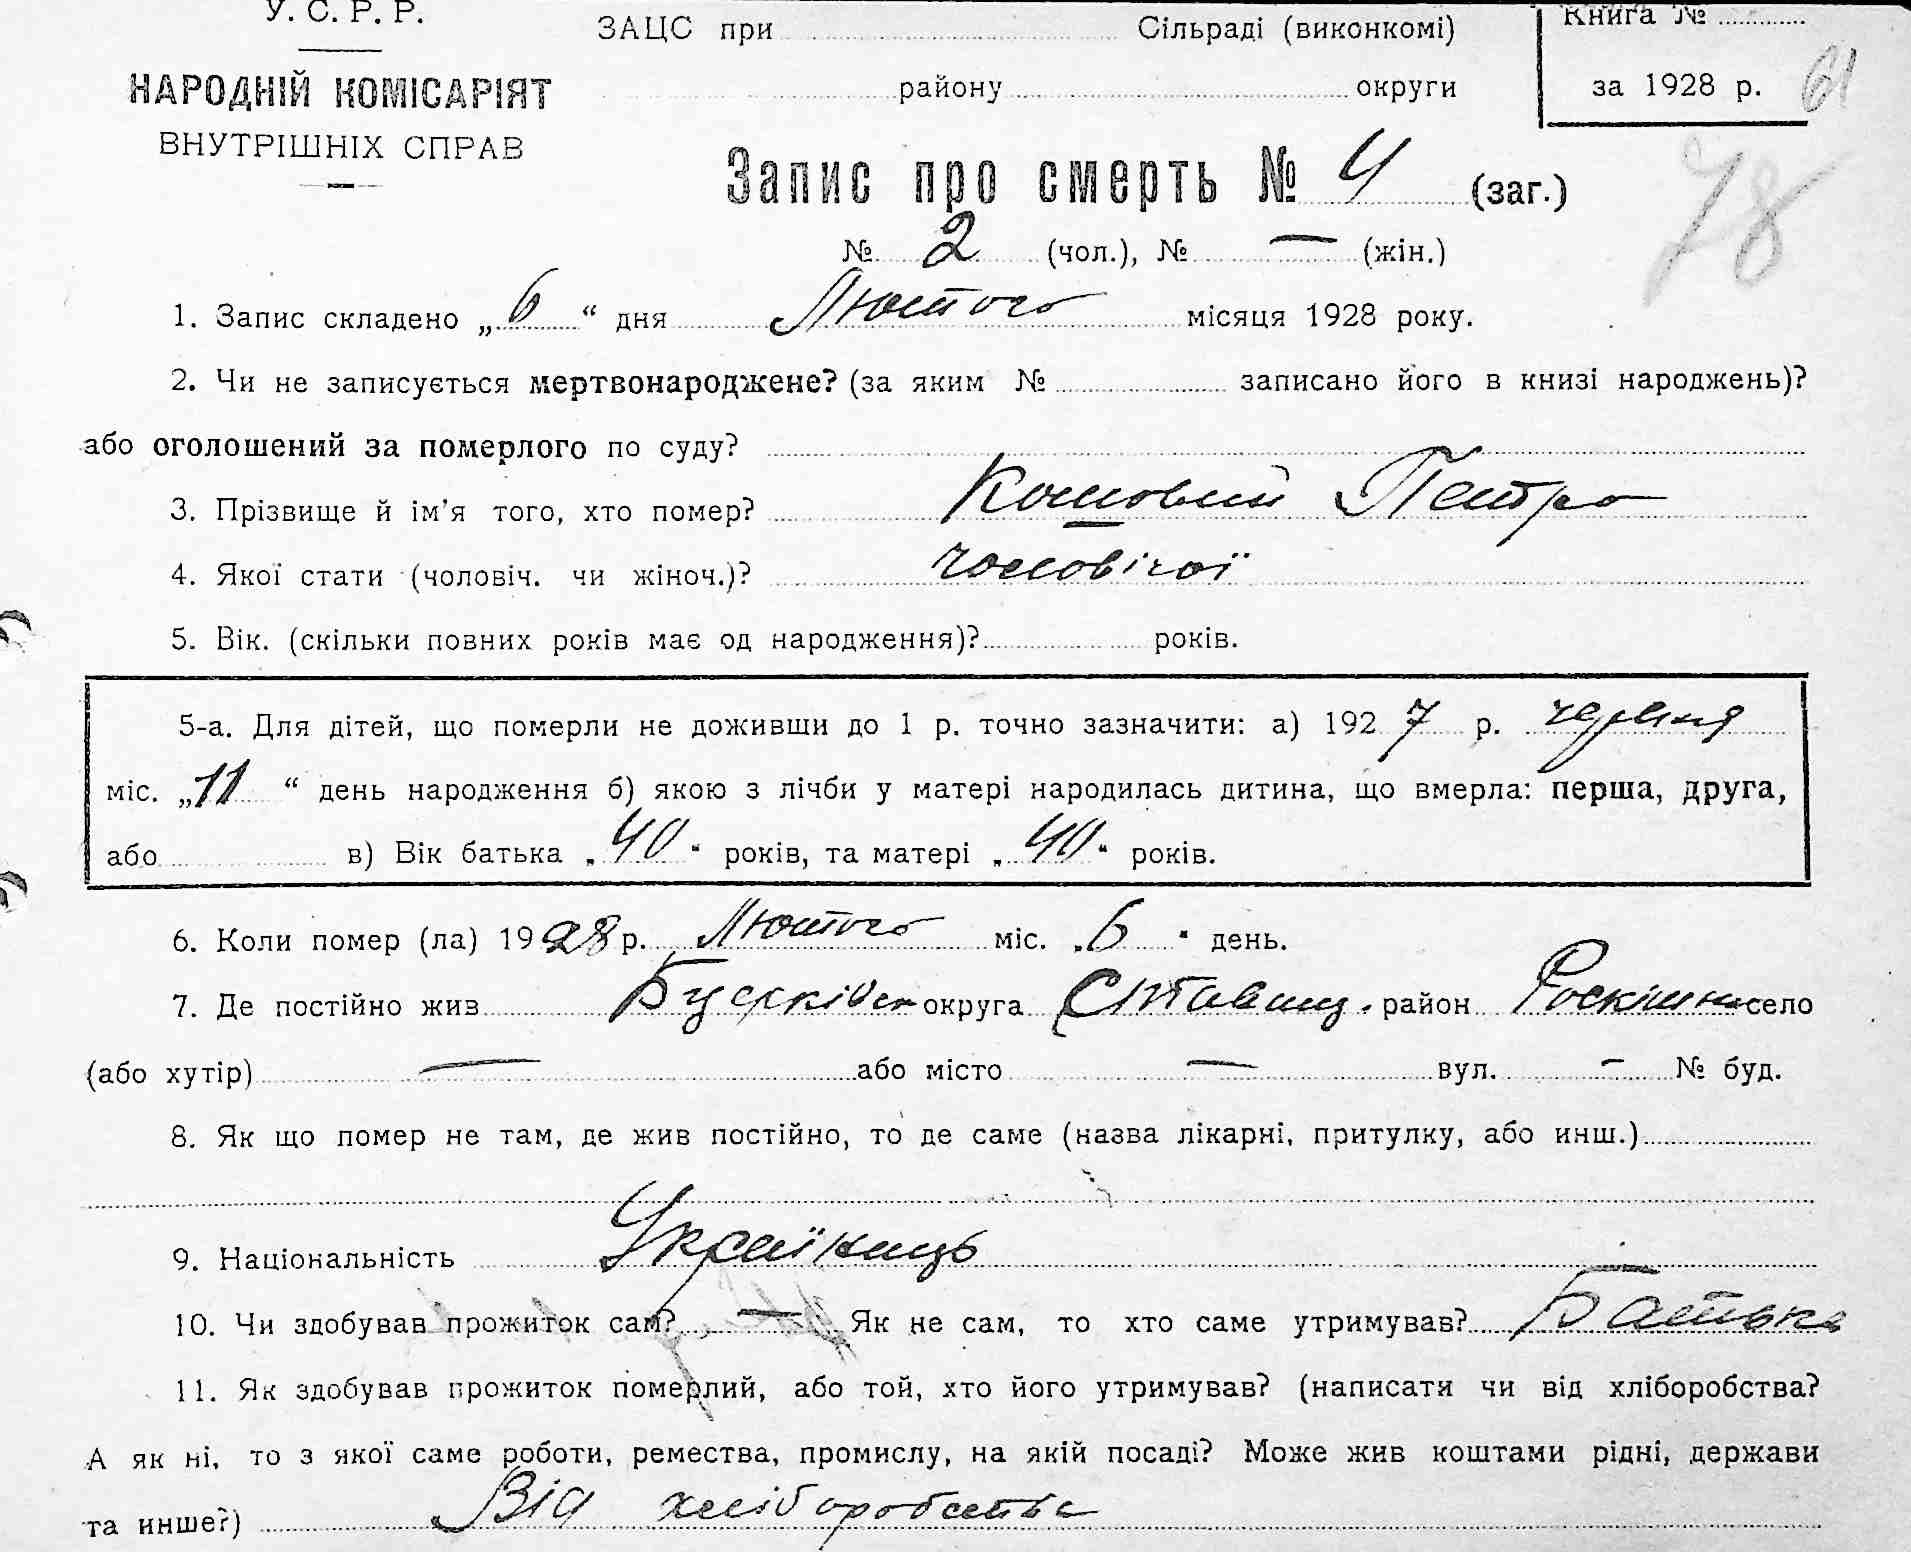 У. С. Р. Р.
НАРОДНІЙ КОМІСАРІЯТ
ВНУТРІШНІХ СПРАВ
ЗАЦС при Сільраді (виконкомі)
району округи
Книга №
за 1928 р.
61
78
Запис про смерть № 4 (заг.)
№ 2 (чол.), № — (жін.)
1. Запис складено „6“ дня Лютого місяця 1928 року.
2. Чи не записується мертвонароджене? (за яким № записано його в книзі народжень)?
або оголошений за померлого по суду?
3. Прізвище й ім'я того, хто помер? Кошовий Петро
4. Якої стати (чоловіч. чи жіноч.)? чоловічої
5. Вік. (скільки повних років має од народження)? років.
5-а. Для дітей, що померли не доживши до 1 р. точно зазначити: а) 1927 р. червня
міс. „11“ день народження б) якою з лічби у матері народилась дитина, що вмерла: перша, друга,
або в) Вік батька „40“ років, та матері „40“ років.
6. Коли помер (ла) 1928 р. Лютого міс. „6“ день.
7. Де постійно жив округа Ставищ. район село
(або хутір) — або місто — вул. — № буд.
8. Як що помер не там, де жив постійно, то де саме (назва лікарні, притулку, або инш.)
9. Національність Українець
10. Чи здобував прожиток сам? — Як не сам, то хто саме утримував? Батько
11. Як здобував прожиток померлий, або той, хто його утримував? (написати чи від хліборобства?
А як ні, то з якої саме роботи, ремества, промислу, на якій посаді? Може жив коштами рідні, держави
та инше?) Від хліборобства